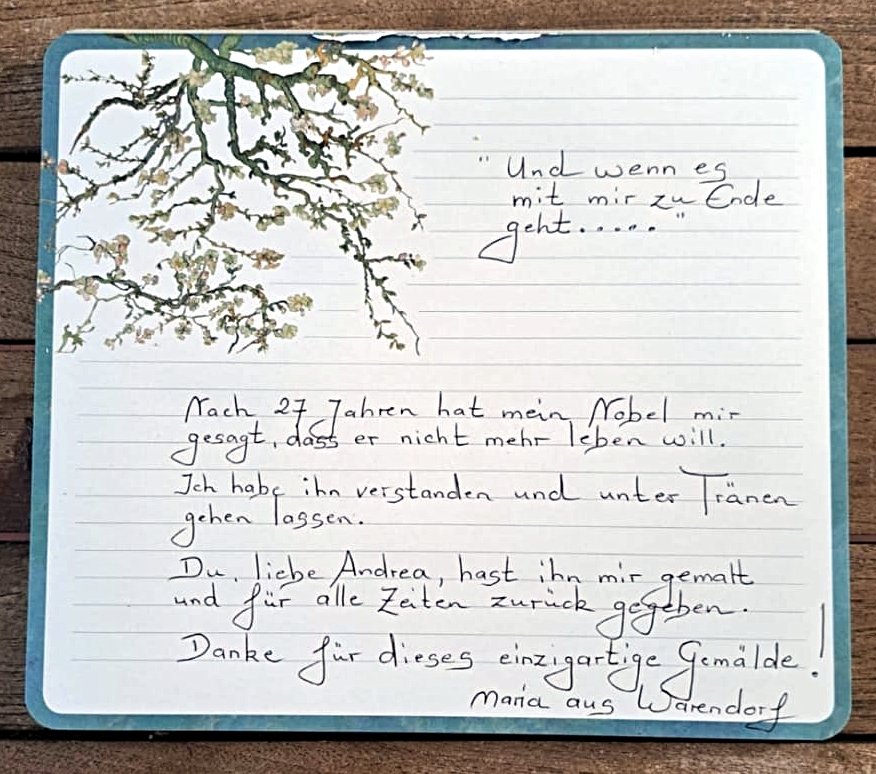 " Und wenn es
mit mir zu Ende
geht..... "
Nach 27 Jahren hat mein Nobel mir
gesagt, dass er nicht mehr leben will.
Ich habe ihn verstanden und unter Tränen
gehen lassen.
Du, liebe Andrea, hast ihn mir gemalt
und für alle Zeiten zurück gegeben.
Danke für dieses einzigartige Gemälde!
Maria aus Warendorf